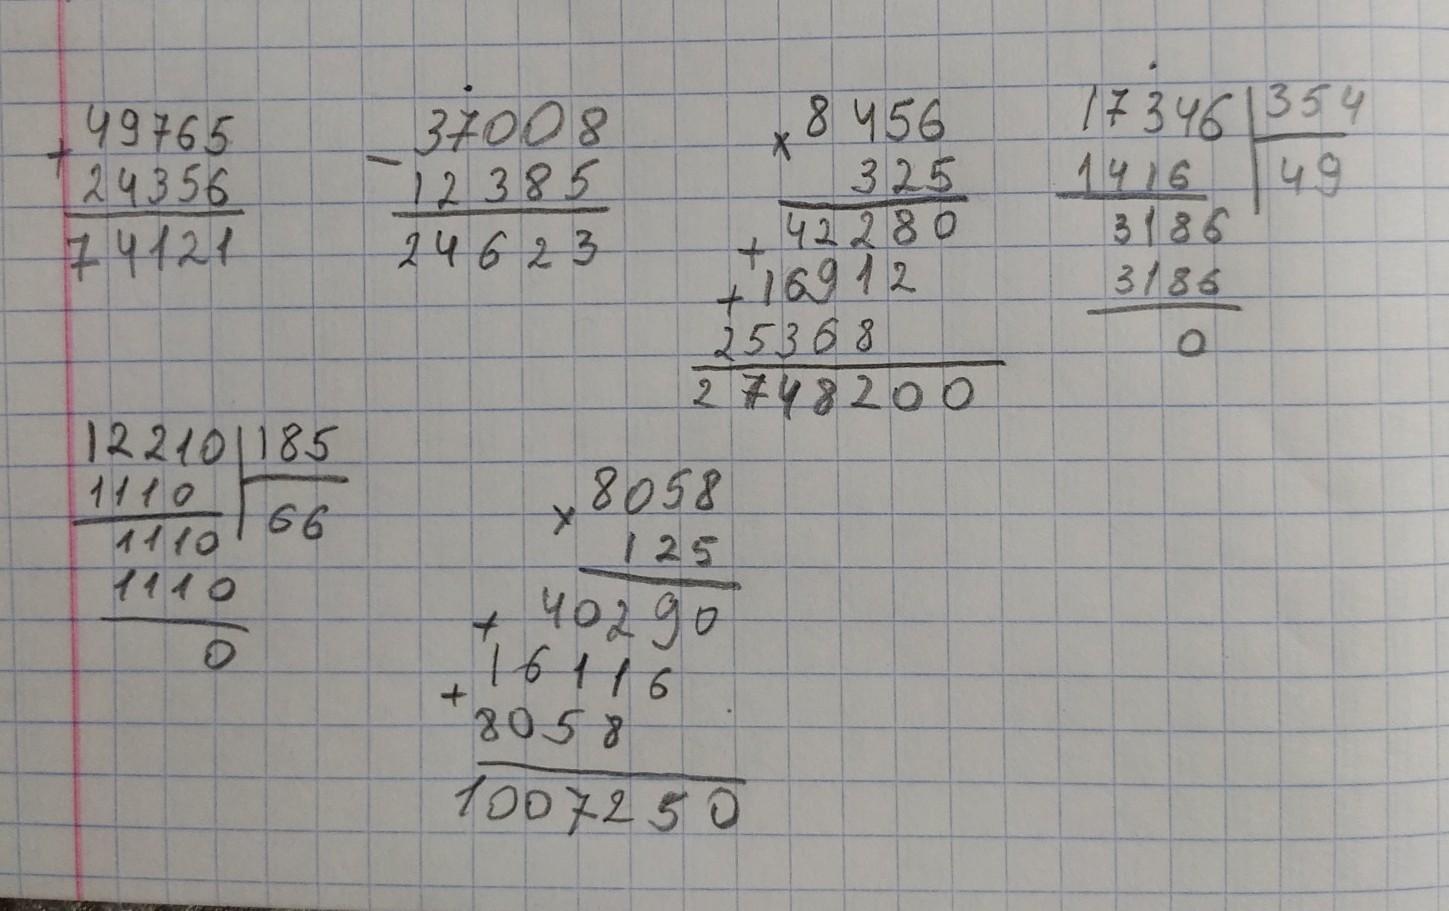 + 49765
24356
74121
- 37008
12385
24623
x 8456
325
+ 42280
+ 16912
25368
2748200
17346 | 354
1416 | 49
3186
3186
0
12210 | 185
1110 | 66
1110
1110
0
x 8058
125
+ 40290
+ 16116
8058
1007250